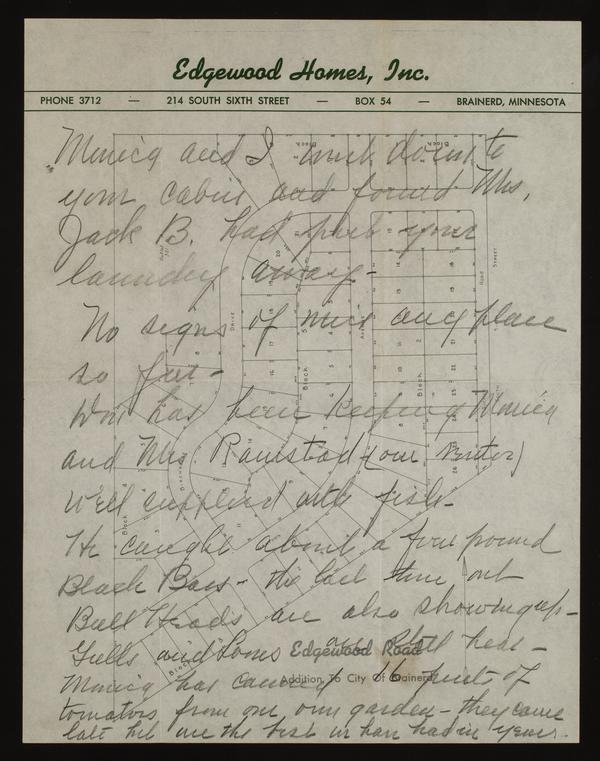 Edgewood Homes, Inc.
PHONE 3712 — 214 SOUTH SIXTH STREET — BOX 54 — BRAINERD, MINNESOTA
Monica and I went down to
your cabin and found Mrs.
Jack B. had put your
laundry away -
No signs of mice any place
so far -
Don has been keeping Monica
and Mrs Ramstad (our
well supplied with fish -
He caught about a four pound
Black Bass - the last time out
Bull Heads are also showing up -
Gulls and Loons are still hear -
Edgewood Road
Addition To City Of Brainerd
Monica has canned 16 pints of
tomatoes from our own garden - they came
late but are the best we have had in years -
Block
Block
Block
Block
Block
Drive
Street